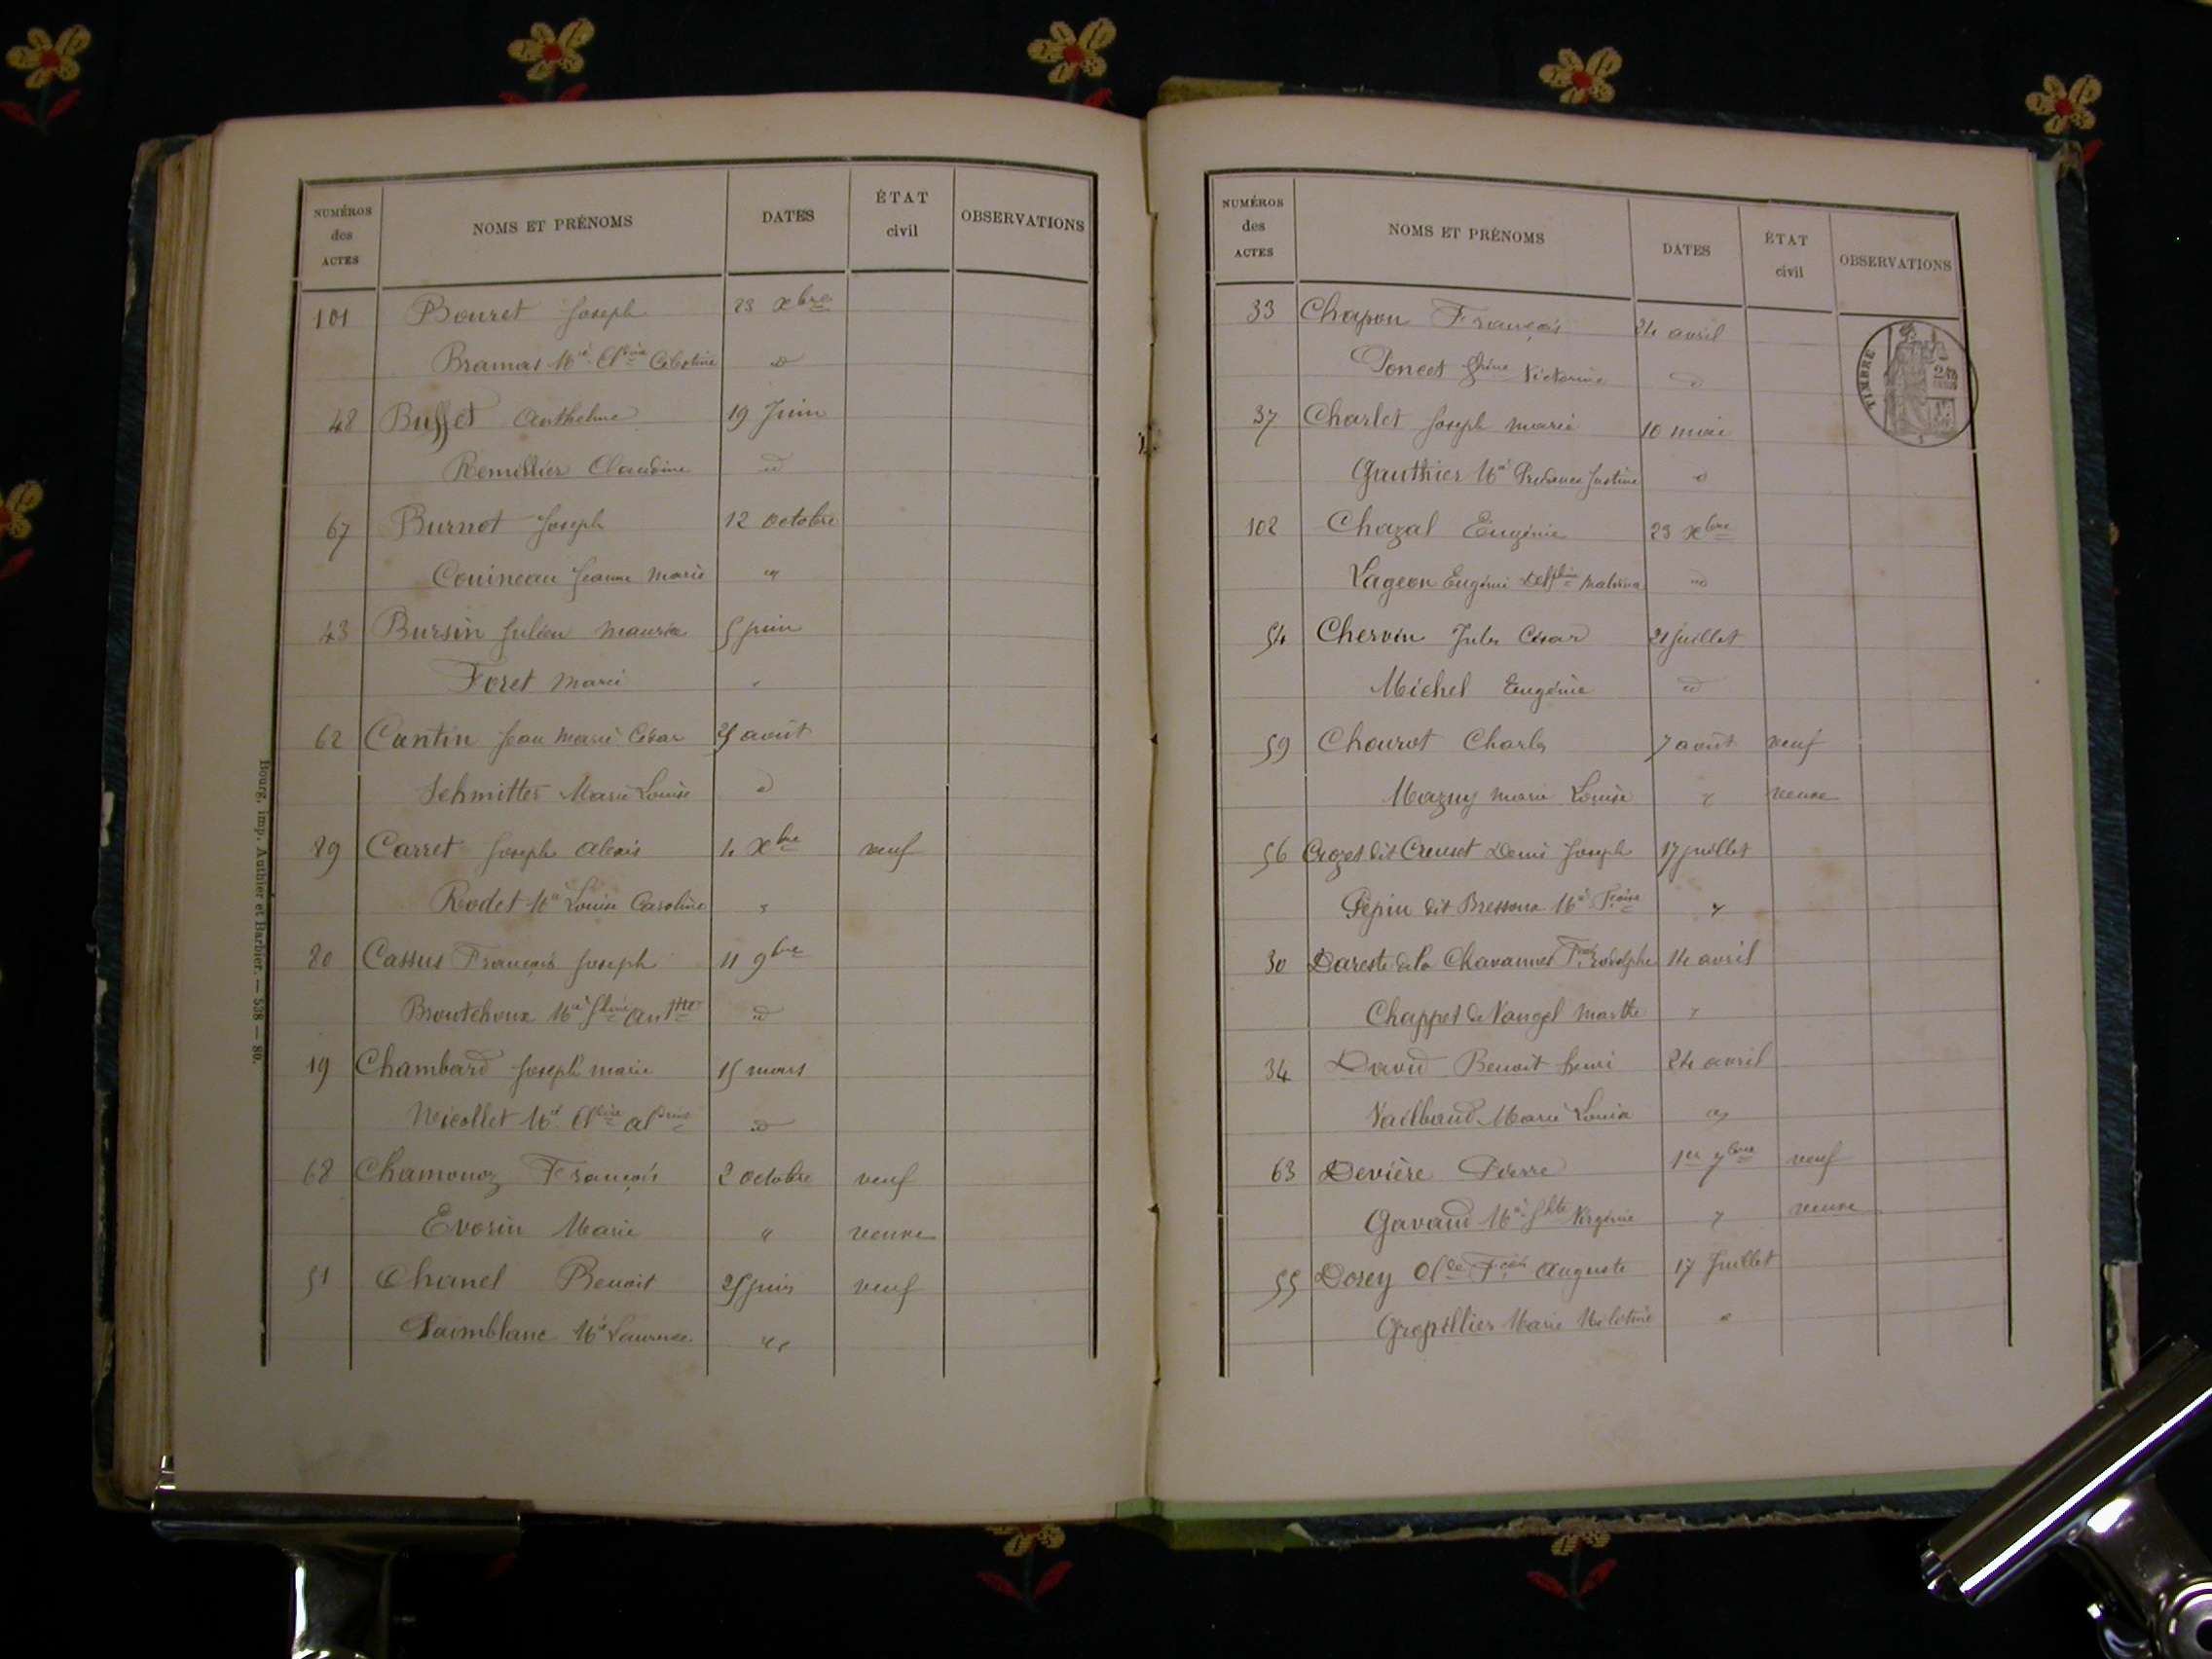 NUMÉROS des ACTES NOMS ET PRÉNOMS DATES ÉTAT civil OBSERVATIONS
101 Bouret Joseph 23 Xbre
Bramas Mie Célestine d
48 Buffet Anthelme 19 Juin
Remillier Claudine id
67 Burnot Joseph 12 octobre
Couineau Jeanne Marie "
43 Bursin Julien Maurice 5 juin
Foret Marie "
62 Cantin Jean Marie César 25 août
Schmitter Marie Louise d
89 Carret Joseph Alexis 4 Xbre veuf
Rodet Mie Louise Caroline "
80 Cassus François Joseph 11 9bre
Broutchoux Mie id
19 Chambard Joseph marie 15 mars
Nicollet Mie id
68 Chamonoz François 2 octobre veuf
Evorin Marie " veuve
51 Chanel Benoit 25 juin veuf
Paimblanc Mie Laurence "
Bourg, imp. Authier et Barbier. — 538 — 80.
NUMÉROS des ACTES NOMS ET PRÉNOMS DATES ÉTAT civil OBSERVATIONS
33 Chapon François 24 avril
TIMBRE
Poncet Victorine d
37 Charlet Joseph marie 10 mai
Gauthier Mie Prudence Justine d
102 Chazal Eugénie 23 Xbre
Lageon Eugénie Delphine Malvina id
54 Chervin Jules César 21 juillet
Michel Eugénie id
59 Chourot Charles 7 août veuf
Mazuy Marie Louise " veuve
56 Crozet dit Creuset Denis Joseph 17 juillet
Pépin dit Bressoux Mie Fçoise "
30 Dareste de la Chavanne Rodolphe 14 avril
Chappet de Vangel Marthe "
34 David Benoit henri 24 avril
Vailbaud Marie Louisa "
63 Devière Pierre 1er 7bre veuf
Gavand Mie Virginie " veuve
55 Dorey Fçois Auguste 17 Juillet
Gropillier Marie "